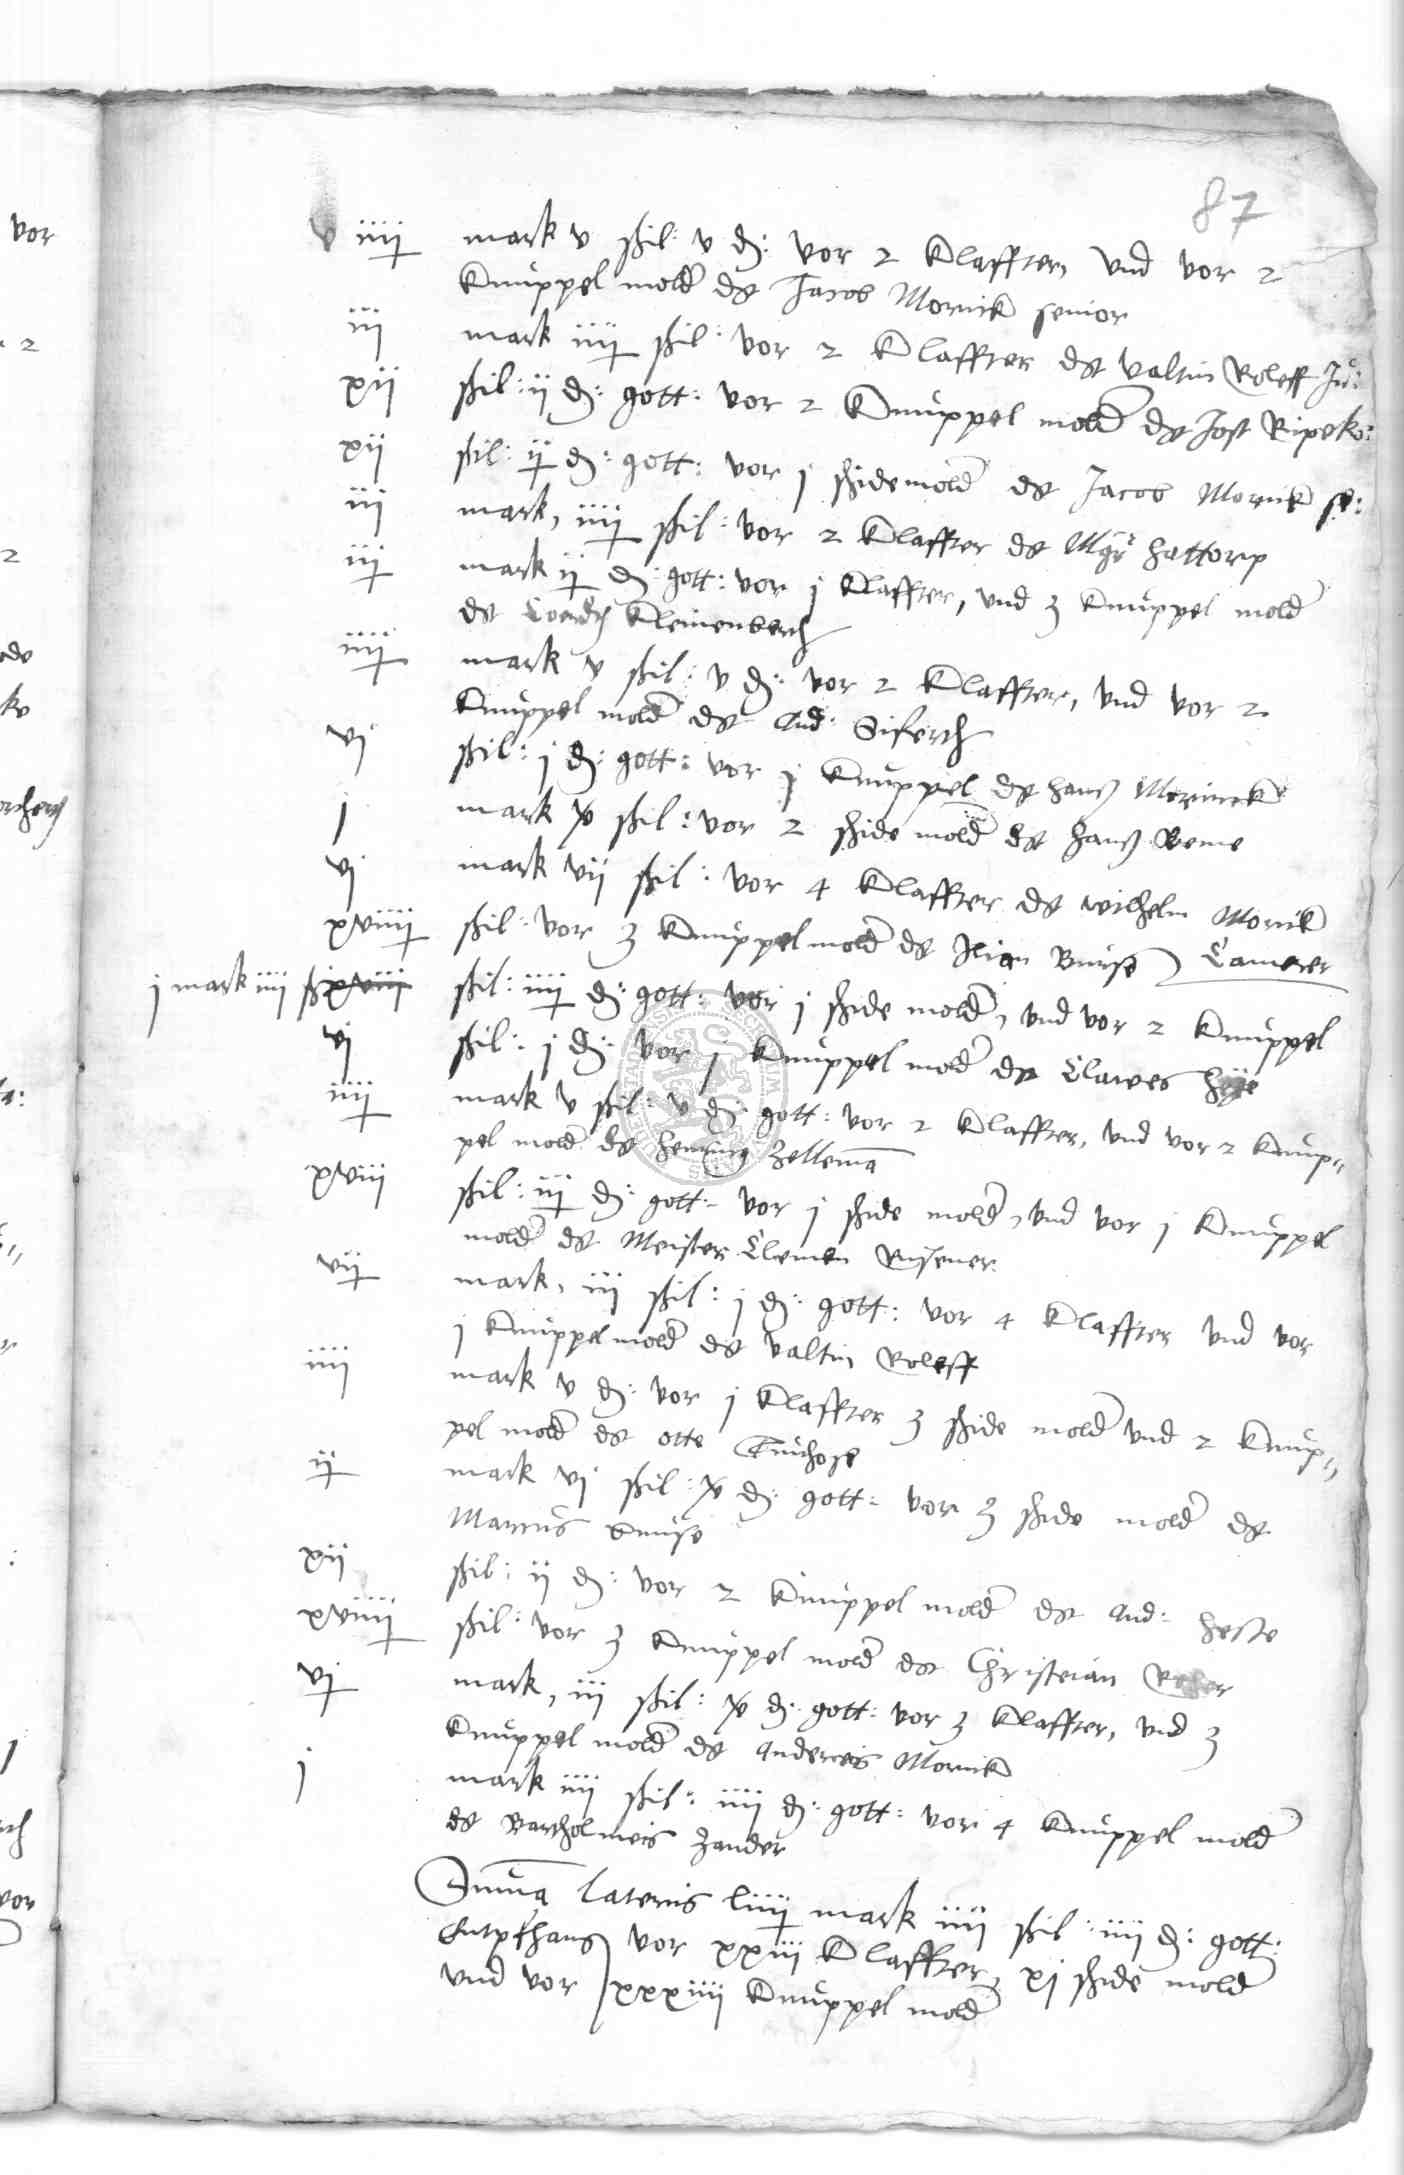 87
iiij mark v ßil: v δ: vor 2 Klaffter, vnd vor 2
Knuppel mold dt Jacob Mornick senior
iij mark iiij ßil: vor 2 Klaffter dt valtin Roleff Ju:
xij ßil: ij δ: gott: vor 2 Knuppel mold dt Jost Ripeko:
xij ßil: ij δ: gott: vor j ßidemold dt Jacob Mornick se:
iij mark, iiij ßil: vor 2 Klaffter dt Mgr hattorp
iij mark ij δ: gott: vor j Klaffter, vnd 3 Knuppel mold
dt Cordt Kleinenberch
iiij mark v ßil: v δ: vor 2 Klaffter, vnd vor 2
Knuppel mold dt And: Siferth
vj ßil: j δ: gott: vor j Knuppel dt hanß Morinck
j mark x ßil: vor 2 ßide mold dt hanß Reme
vj mark vij ßil: vor 4 Klaffter dt wilhelm Mornick
xviiij ßil: vor 3 Knuppel mold dt Ilian Bunse Camerer
j mark iiij ß xviij ßil: iiij δ: gott: vor j ßide mold, vnd vor 2 Knuppel
vj ßil: j δ: vor j Knuppel mold dt Clawes
iiij mark v ßil: v δ: gott: vor 2 Klaffter, vnd vor 2 Knup-
pel mold dt henning Zellema
xviij ßil: iij δ: gott: vor j ßide mold, vnd vor j Knuppel
mold dt Meister Clemen
vij mark, iij ßil: j δ: gott: vor 4 Klaffter vnd vor
j Knuppel mold dt valtin Roleff
iiij mark v δ: vor j Klaffter 3 ßide mold vnd 2 Knup-
pel mold dt otte
ij mark vj ßil: x δ: gott: vor 3 ßide mold dt
Marcus
xij ßil: ij δ: vor 2 Knuppel mold dt And: heste
xviiij ßil: vor 3 Knuppel mold dt Christian
vj mark, iij ßil: x δ: gott: vor 3 Klaffter, vnd 3
Knuppel mold dt Andreas Mornick
j mark iiij ßil: iiij δ: gott: vor 4 Knuppel mold
dt Bartholmeis Zander
Suma lateris liiij mark iiij ßil: iiij δ: gott:
Entpfhang vor xxiij Klaffter, xj ßide mold
vnd vor xxxiiij Knuppel mold